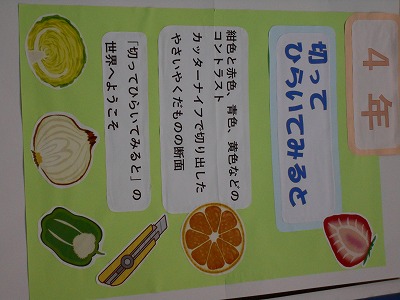 4年
切って
ひらいてみると
紺色と赤色、青色、黄色などの
コントラスト
カッターナイフで切り出した
やさいやくだものの断面
「切ってひらいてみると」の
世界へようこそ